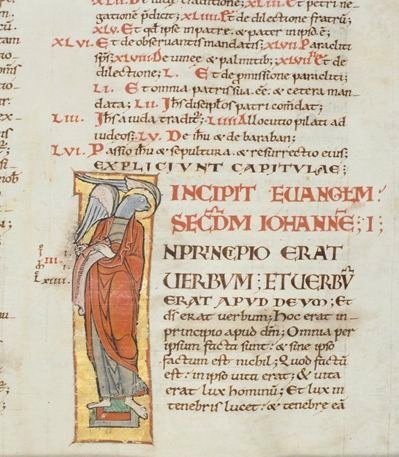 gatione p̄dicit; XLIIII. Et de dilectione fratrū;
XLV. Et qđ ipse in patre. & pater in ipso ē;
XLVI. Et de obseruantis mandatis; XLVII. Paracliti
sp̄s; XLVIII. De uinee & palmitib;
dilectione; L. Et de p̄missione paracliti;
LI. Et omnia patris sua. ēē. & cetera man-
data; LII. Ih̄s discipl̄os patri com̄dat;
LIII. Ih̄s a iuda tradit̄; LIIII. Allocutio pilati ad
iudeos; LV. De ih̄u & de baraban;
LVI. Passio ih̄u & sepultura. & resurrectio eius;
EXPLICIUNT CAPITULAE;
INCIPIT EUANGLM̄
SECD̄M IOHANNĒ; I;
N PRINCIPIO ERAT
UERBUM; ET UERBŪ
ERAT APUD DEUM; Et
d̄s erat uerbum; Hoc erat in
principio apud dm̄; Omnia per
ipsum facta sunt: & sine ipso
factum est nichil; Quod factū
est: in ipso uita erat; & uita
erat lux hominū; Et lux in
tenebris lucet: & tenebre eā
III.
LXIIII.